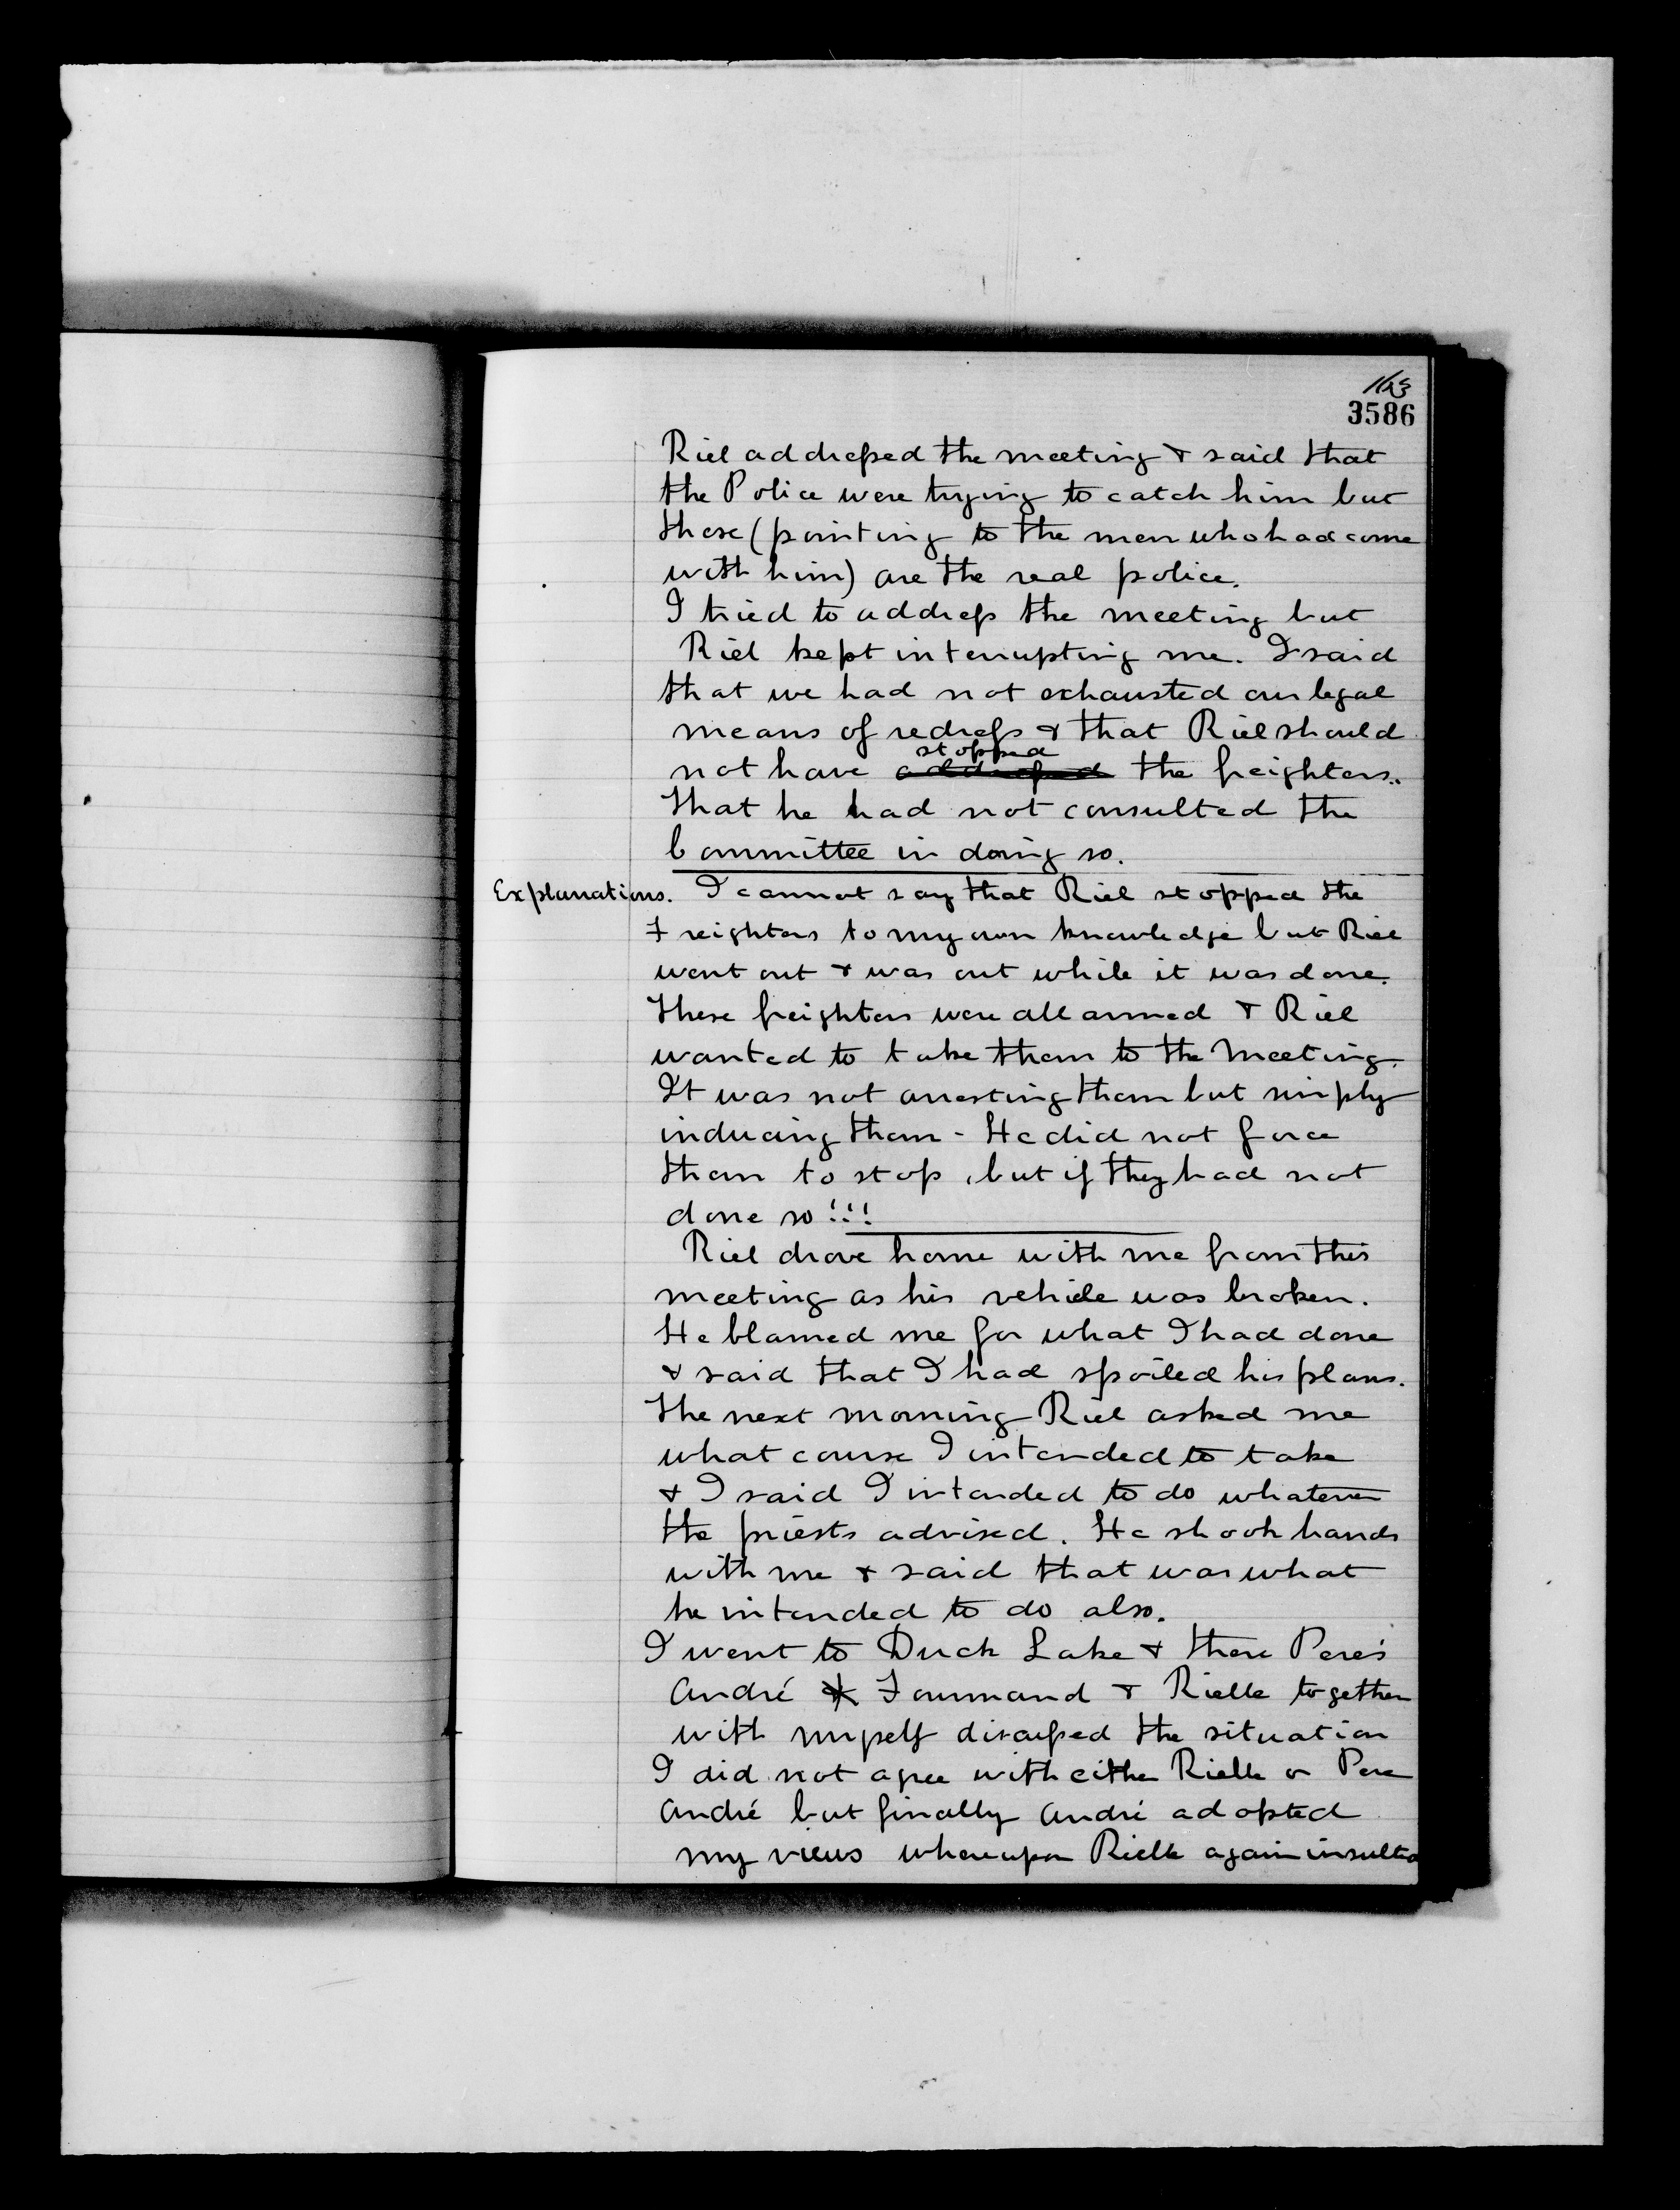 163
3586
Riel addressed the meeting & said that
the Police were trying to catch him but
these (pointing to the men who had come
with him) are the real police.
I tried to address the meeting but
Riel kept interrupting me. I said
that we had not exhausted our legal
means of redress & that Riel should
stopped
not have addressed the freighters..
That he had not consulted the
Committee in doing so.
Explanations. I cannot say that Riel stopped the
Freighters to my own knowledge but Riel
went out & was out while it was done.
These freighters were all armed & Riel
wanted to take them to the Meeting.
It was not arresting them but simply
inducing them - He did not force
them to stop, but if they had not
done so!!!
Riel drove home with me from this
meeting as his vehicle was broken.
He blamed me for what I had done
& said that I had spoiled his plans.
The next morning Riel asked me
what course I intended to take
& I said I intended to do whatever
the priests advised. He shook hands
with me & said that was what
he intended to do also.
I went to Duck Lake & there Pere's
André & Fourmand & Rielle together
with myself discussed the situation
I did not agree with either Rielle or Pere
André but finally André adopted
my views whereupon Rielle again insulted